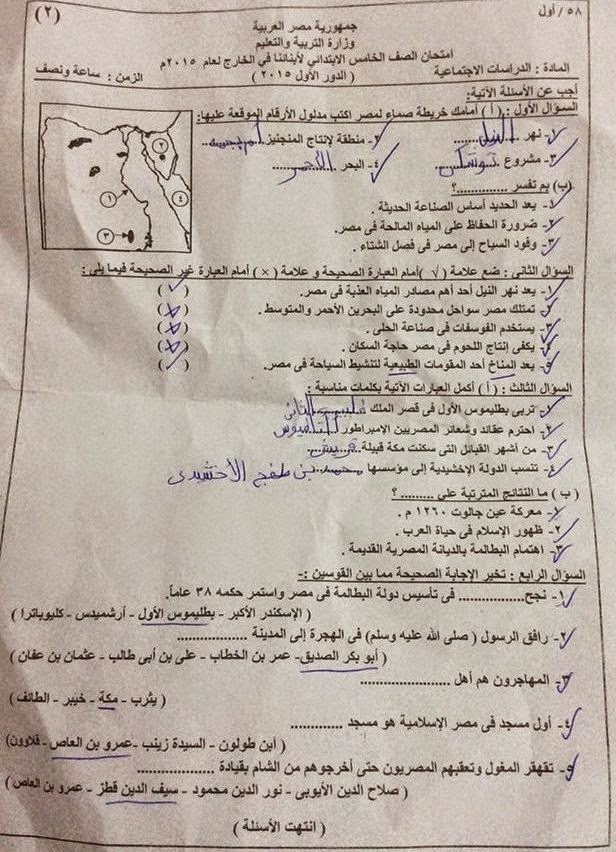 ٥٨ / أول
(٢)
جمهورية مصر العربية
وزارة التربية والتعليم
امتحان الصف الخامس الابتدائي لأبنائنا في الخارج لعام ٢٠١٥م
المادة : الدراسات الاجتماعية ( الدور الأول ٢٠١٥ ) الزمن : ساعة ونصف
أجب عن الأسئلة الآتية:
السؤال الأول : ( أ ) أمامك خريطة صماء لمصر اكتب مدلول الأرقام الموقعة عليها:
١- نهر النيل ٢- منطقة لإنتاج المنجنيز
٣- مشروع توشكى ٤- البحر الأحمر
٢
١
٤
٣
(ب) بم تفسر ............؟
١- يعد الحديد أساس الصناعة الحديثة .
٢- ضرورة الحفاظ على المياه المالحة فى مصر.
٣- وفود السياح إلى مصر فى فصل الشتاء .
السؤال الثانى : ضع علامة (√) أمام العبارة الصحيحة و علامة (×) أمام العبارة غير الصحيحة فيما يلى :
١- يعد نهر النيل أحد أهم مصادر المياه العذبة فى مصر. (✓)
٢- تمتلك مصر سواحل محدودة على البحرين الأحمر والمتوسط . (×)
٣- يستخدم الفوسفات فى صناعة الحلى . (×)
٤- يكفى إنتاج اللحوم فى مصر حاجة السكان . (×)
٥- يعد المناخ أحد المقومات الطبيعية لتنشيط السياحة فى مصر. (✓)
السؤال الثالث : ( أ ) أكمل العبارات الآتية بكلمات مناسبة :
١- تربى بطليموس الأول فى قصر الملك فليب الثانى
٢- احترم عقائد وشعائر المصريين الامبراطور
٣- من أشهر القبائل التى سكنت مكة قبيلة قريش
٤- تنسب الدولة الإخشيدية إلى مؤسسها محمد بن طغج الأخشيدى
( ب ) ما النتائج المترتبة على ......... ؟
١- معركة عين جالوت ١٢٦٠ م .
٢- ظهور الإسلام فى حياة العرب .
٣- اهتمام البطالمة بالديانة المصرية القديمة .
السؤال الرابع : تخير الإجابة الصحيحة مما بين القوسين :-
١- نجح............... فى تأسيس دولة البطالمة فى مصر واستمر حكمه ٣٨ عاماً.
( الإسكندر الأكبر - بطليموس الأول - أرشميدس - كليوباترا )
٢- رافق الرسول ( صلى الله عليه وسلم) فى الهجرة إلى المدينة ................
( أبو بكر الصديق- عمر بن الخطاب - على بن أبى طالب - عثمان بن عفان )
٣- المهاجرون هم أهل ....................
( يثرب - مكة - خيبر - الطائف )
٤- أول مسجد فى مصر الإسلامية هو مسجد ....................
( ابن طولون - السيدة زينب - عمرو بن العاص - قلاوون)
٥- تقهقر المغول وتعقبهم المصريون حتى أخرجوهم من الشام بقيادة .................
( صلاح الدين الأيوبى - نور الدين محمود - سيف الدين قطز - عمرو بن العاص )
( انتهت الأسئلة )